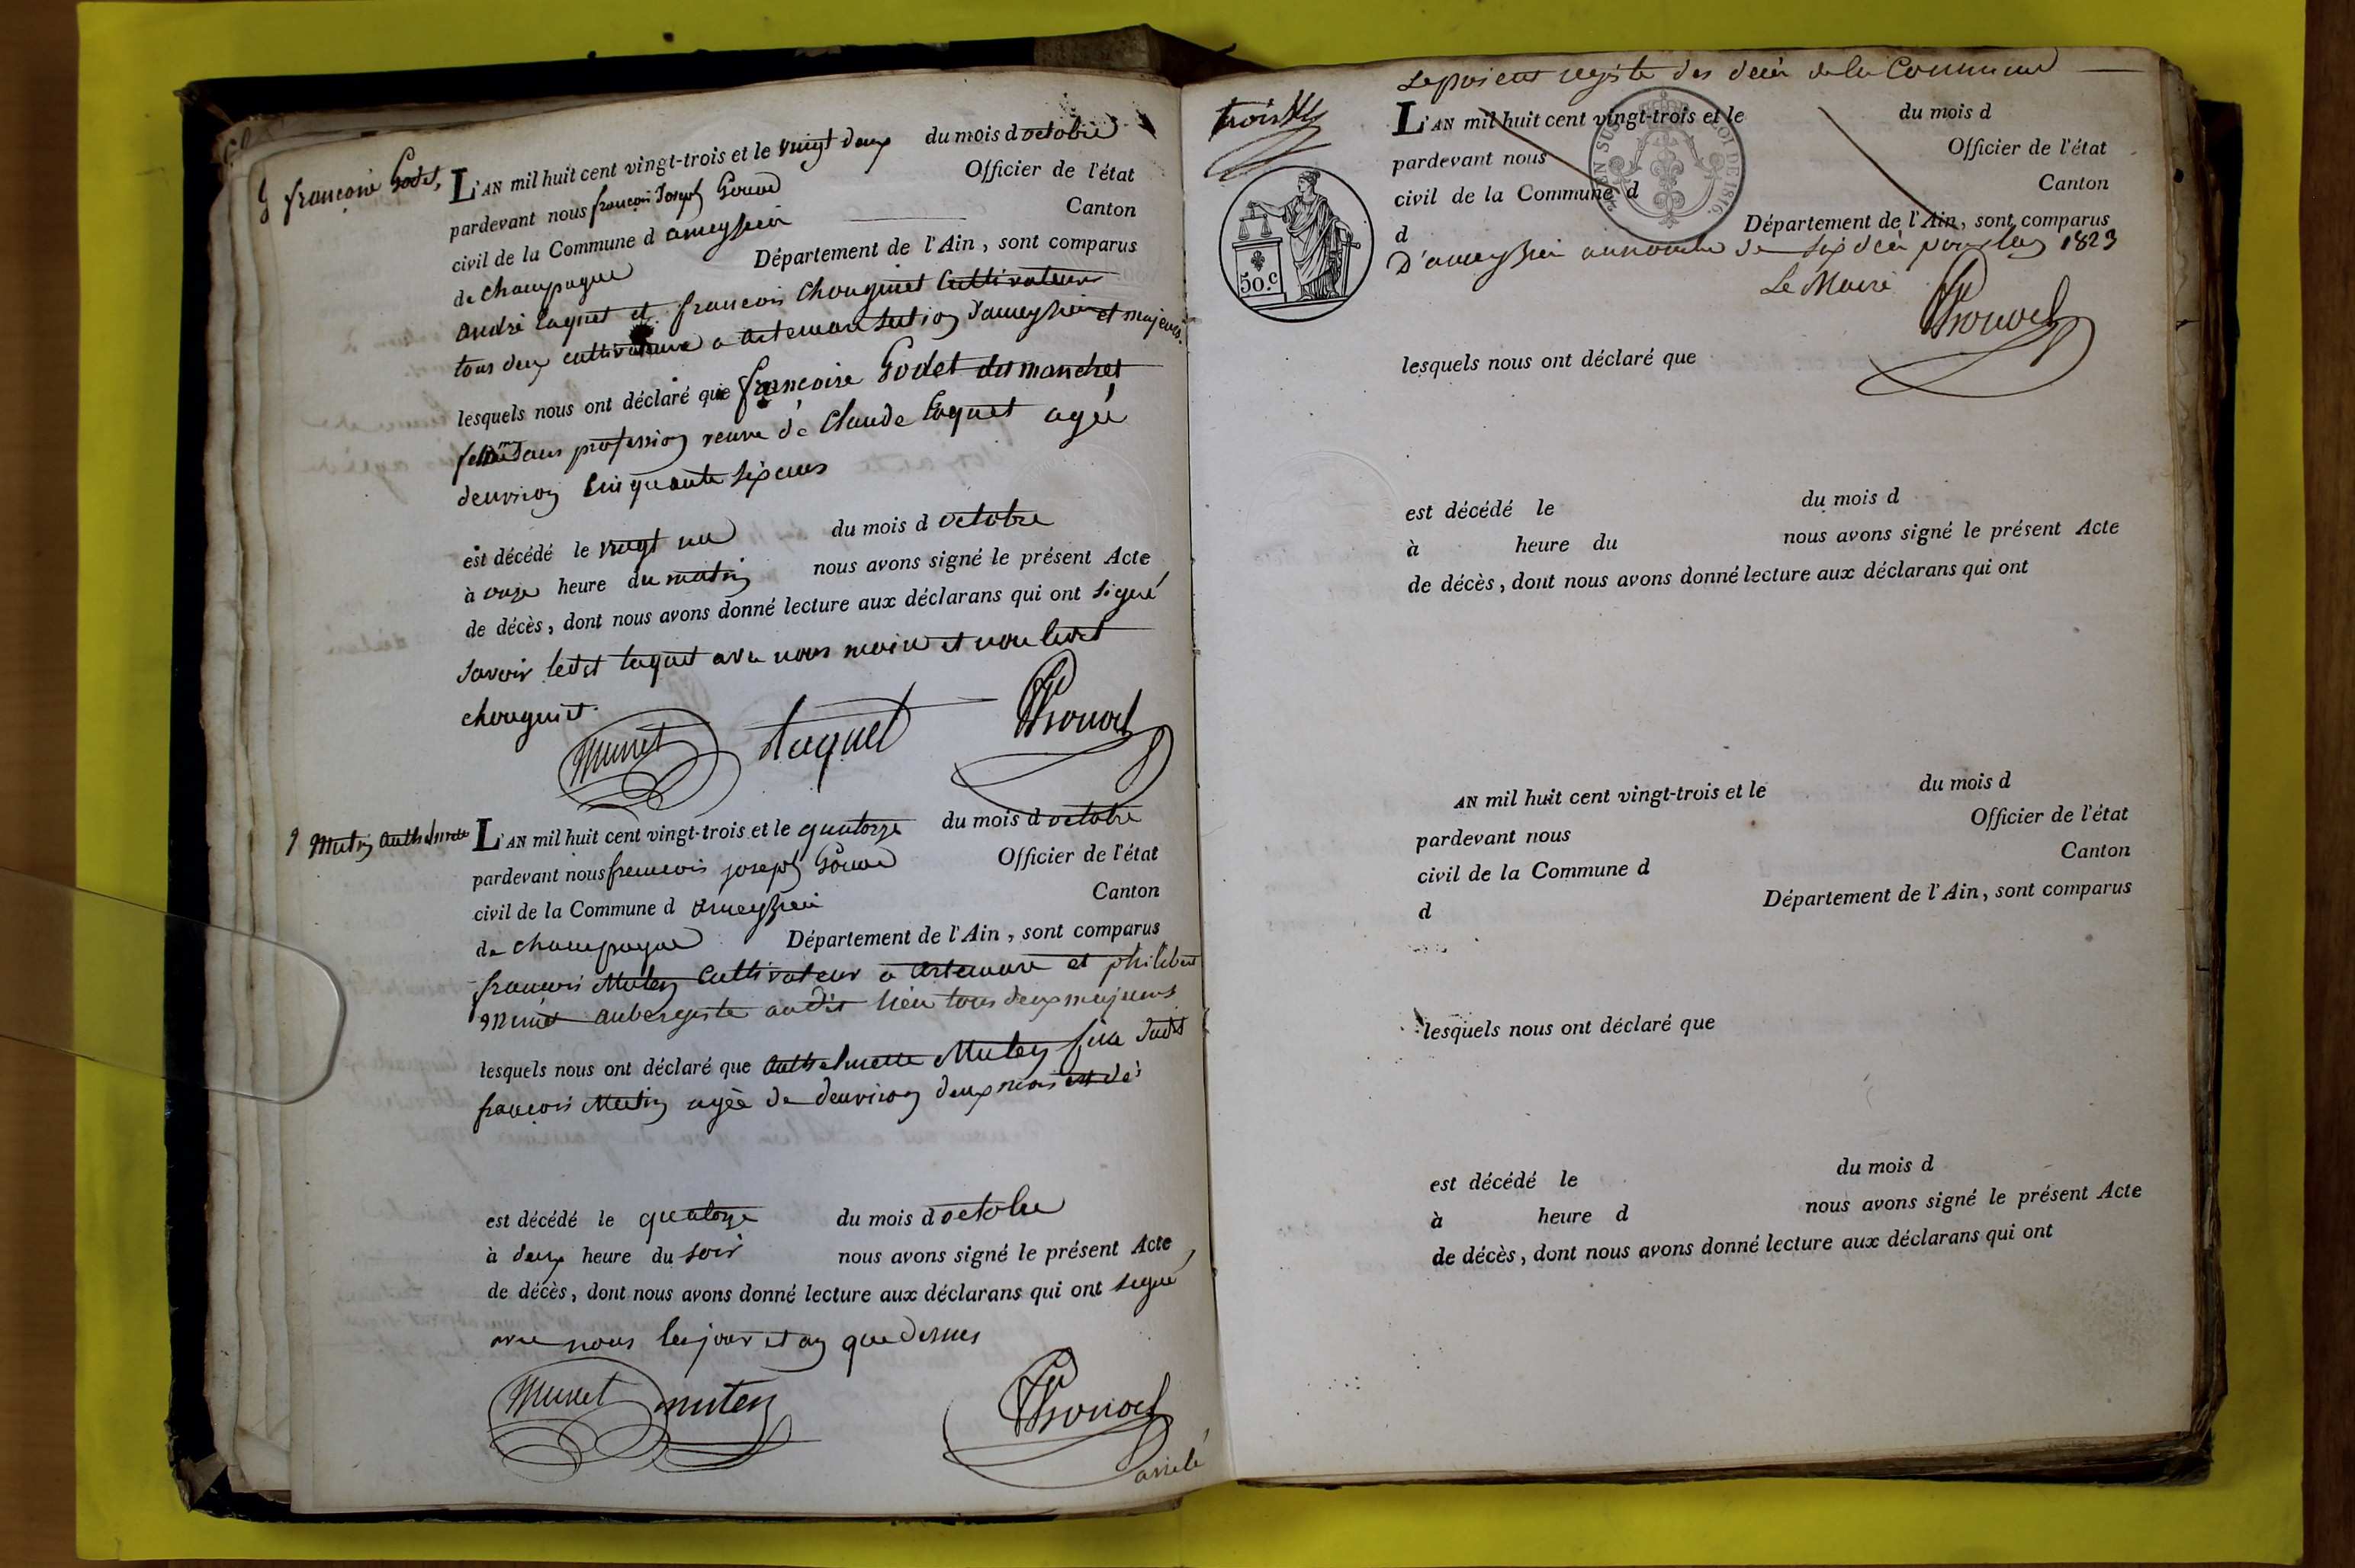 françoise Godet
L'AN mil huit cent vingt-trois et le vingt deux du mois d octobre
pardevant nous françois Joseph Officier de l'état
civil de la Commune d ameyzieu Canton
de champagne Département de l'Ain, sont comparus
andré taquet et françois chouquet Cultivateurs
tous deux a artemare section d'ameyzieu et majeurs
lesquels nous ont déclaré que françoise Godet
sans profession veuve de Claude taquet agée
d'environ cinquante six ans
est décédé le vingt un du mois d octobre
à onze heure du matin nous avons signé le présent Acte
de décès, dont nous avons donné lecture aux déclarans qui ont signé
savoir ledit taquet avec nous maire et non ledit
chouquet.
Munet taquet
Mutin anthelmette
L'AN mil huit cent vingt-trois et le quatorze du mois d octobre
pardevant nous francois joseph Officier de l'état
civil de la Commune d ameyzieu Canton
de champagne Département de l'Ain, sont comparus
francois Mutin Cultivateur a artemare et philibert
Munet aubergiste audit lieu tous deux majeurs
lesquels nous ont déclaré que anthelmette Mutin fille dudit
françois Mutin agée de d'environ deux mois est dé
est décédé le quatorze du mois d octobre
à deux heure du soir nous avons signé le présent Acte
de décès, dont nous avons donné lecture aux déclarans qui ont signé
avec nous les jour et an que dessus
Munet mutin
arrêté
trois
Le présent registre des décès de la Commune
L'AN mil huit cent vingt-trois et le du mois d
pardevant nous Officier de l'état
civil de la Commune d Canton
d Département de l'Ain, sont comparus
D'ameyzieu au nombre de six décès pour l'an 1823
Le Maire
50.c
LOI DE 1816.
lesquels nous ont déclaré que
est décédé le du mois d
à heure du nous avons signé le présent Acte
de décès, dont nous avons donné lecture aux déclarans qui ont
AN mil huit cent vingt-trois et le du mois d
pardevant nous Officier de l'état
civil de la Commune d Canton
d Département de l'Ain, sont comparus
lesquels nous ont déclaré que
est décédé le du mois d
à heure d nous avons signé le présent Acte
de décès, dont nous avons donné lecture aux déclarans qui ont